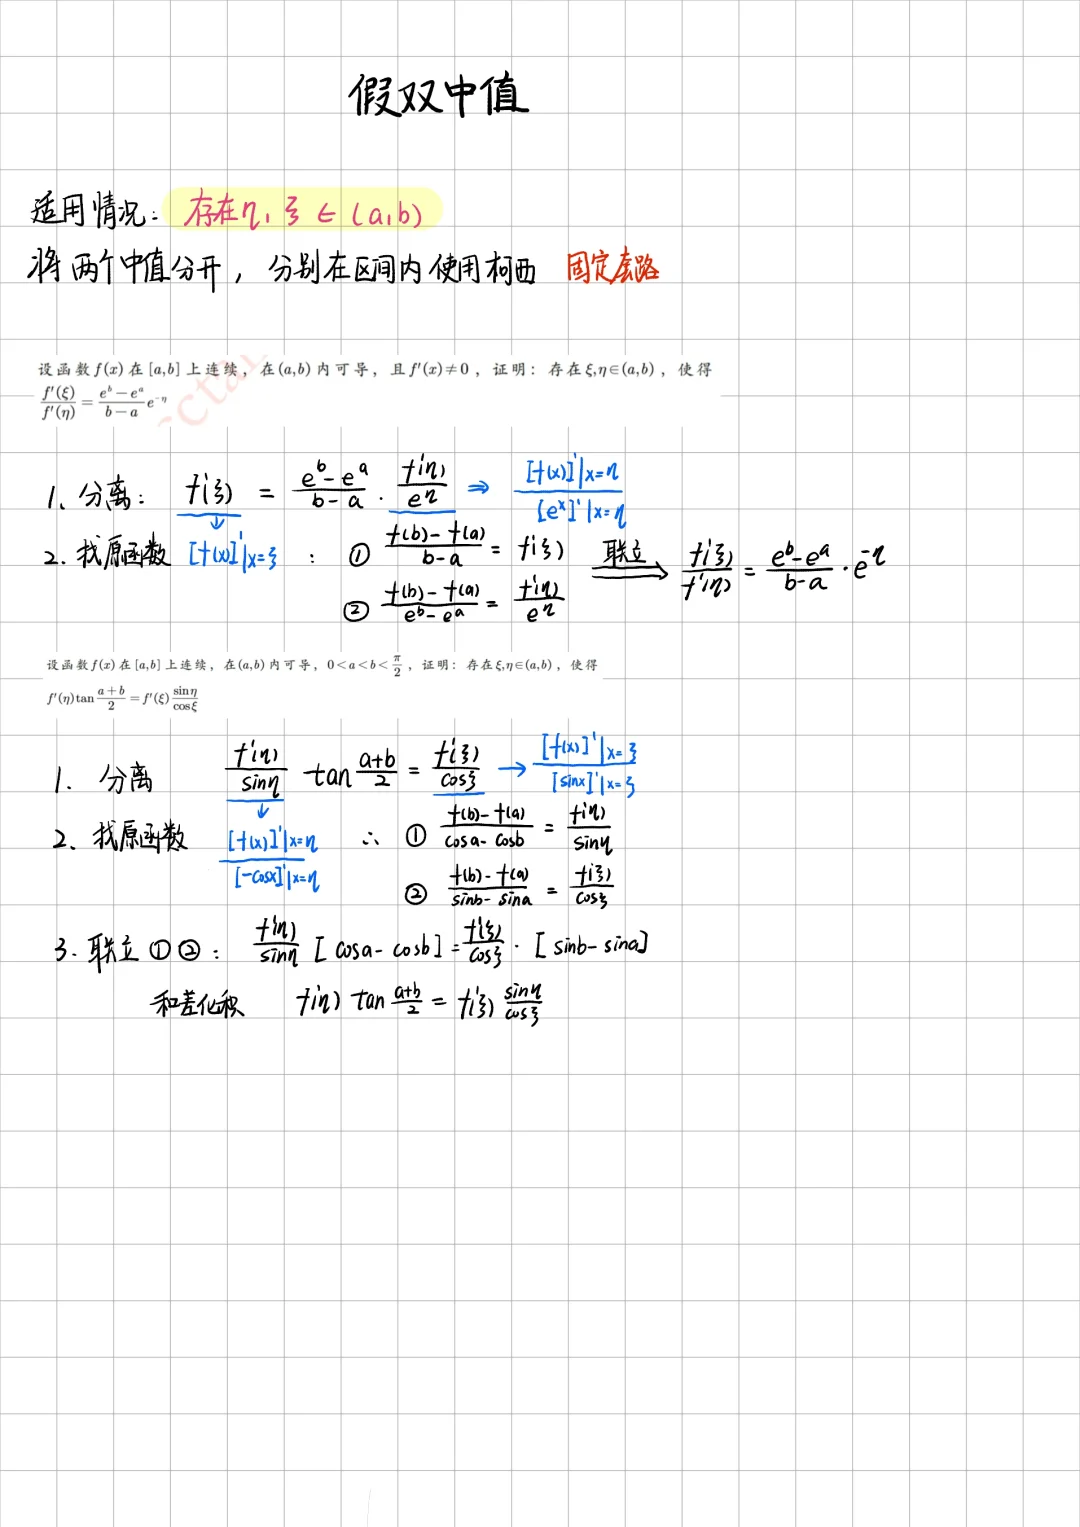 假双中值
适用情况: 存在η, ξ ∈ (a, b)
将两个中值分开, 分别在区间内使用柯西 固定套路
设函数 f(x) 在 [a,b] 上连续, 在 (a,b) 内可导, 且 f′(x)≠0, 证明: 存在 ξ,η∈(a,b), 使得
f′(ξ)/f′(η) = (e^b−e^a)/(b−a) e^{−η}
1、分离: f′(ξ) = (e^b−e^a)/(b−a) · f′(η)/e^η ⇒ [f(x)]′|x=η / [e^x]′|x=η
2. 找原函数 [f(x)]′|x=ξ : ① (f(b)−f(a))/(b−a) = f′(ξ) 联立 f′(ξ)/f′(η) = (e^b−e^a)/(b−a) · e^{−η}
② (f(b)−f(a))/(e^b−e^a) = f′(η)/e^η
设函数 f(x) 在 [a,b] 上连续, 在 (a,b) 内可导, 0<a<b<π/2, 证明: 存在 ξ,η∈(a,b), 使得
f′(η)tan (a+b)/2 = f′(ξ) sinη/cosξ
1. 分离 f′(η)/sinη tan (a+b)/2 = f′(ξ)/cosξ → [f(x)]′|x=ξ / [sinx]′|x=ξ
2、找原函数 [f(x)]′|x=η / [−cosx]′|x=η ∴ ① (f(b)−f(a))/(cosa−cosb) = f′(η)/sinη
② (f(b)−f(a))/(sinb−sina) = f′(ξ)/cosξ
3. 联立 ①②: f′(η)/sinη [cosa−cosb] = f′(ξ)/cosξ · [sinb−sina]
和差化积 f′(η) tan (a+b)/2 = f′(ξ) sinη/cosξ